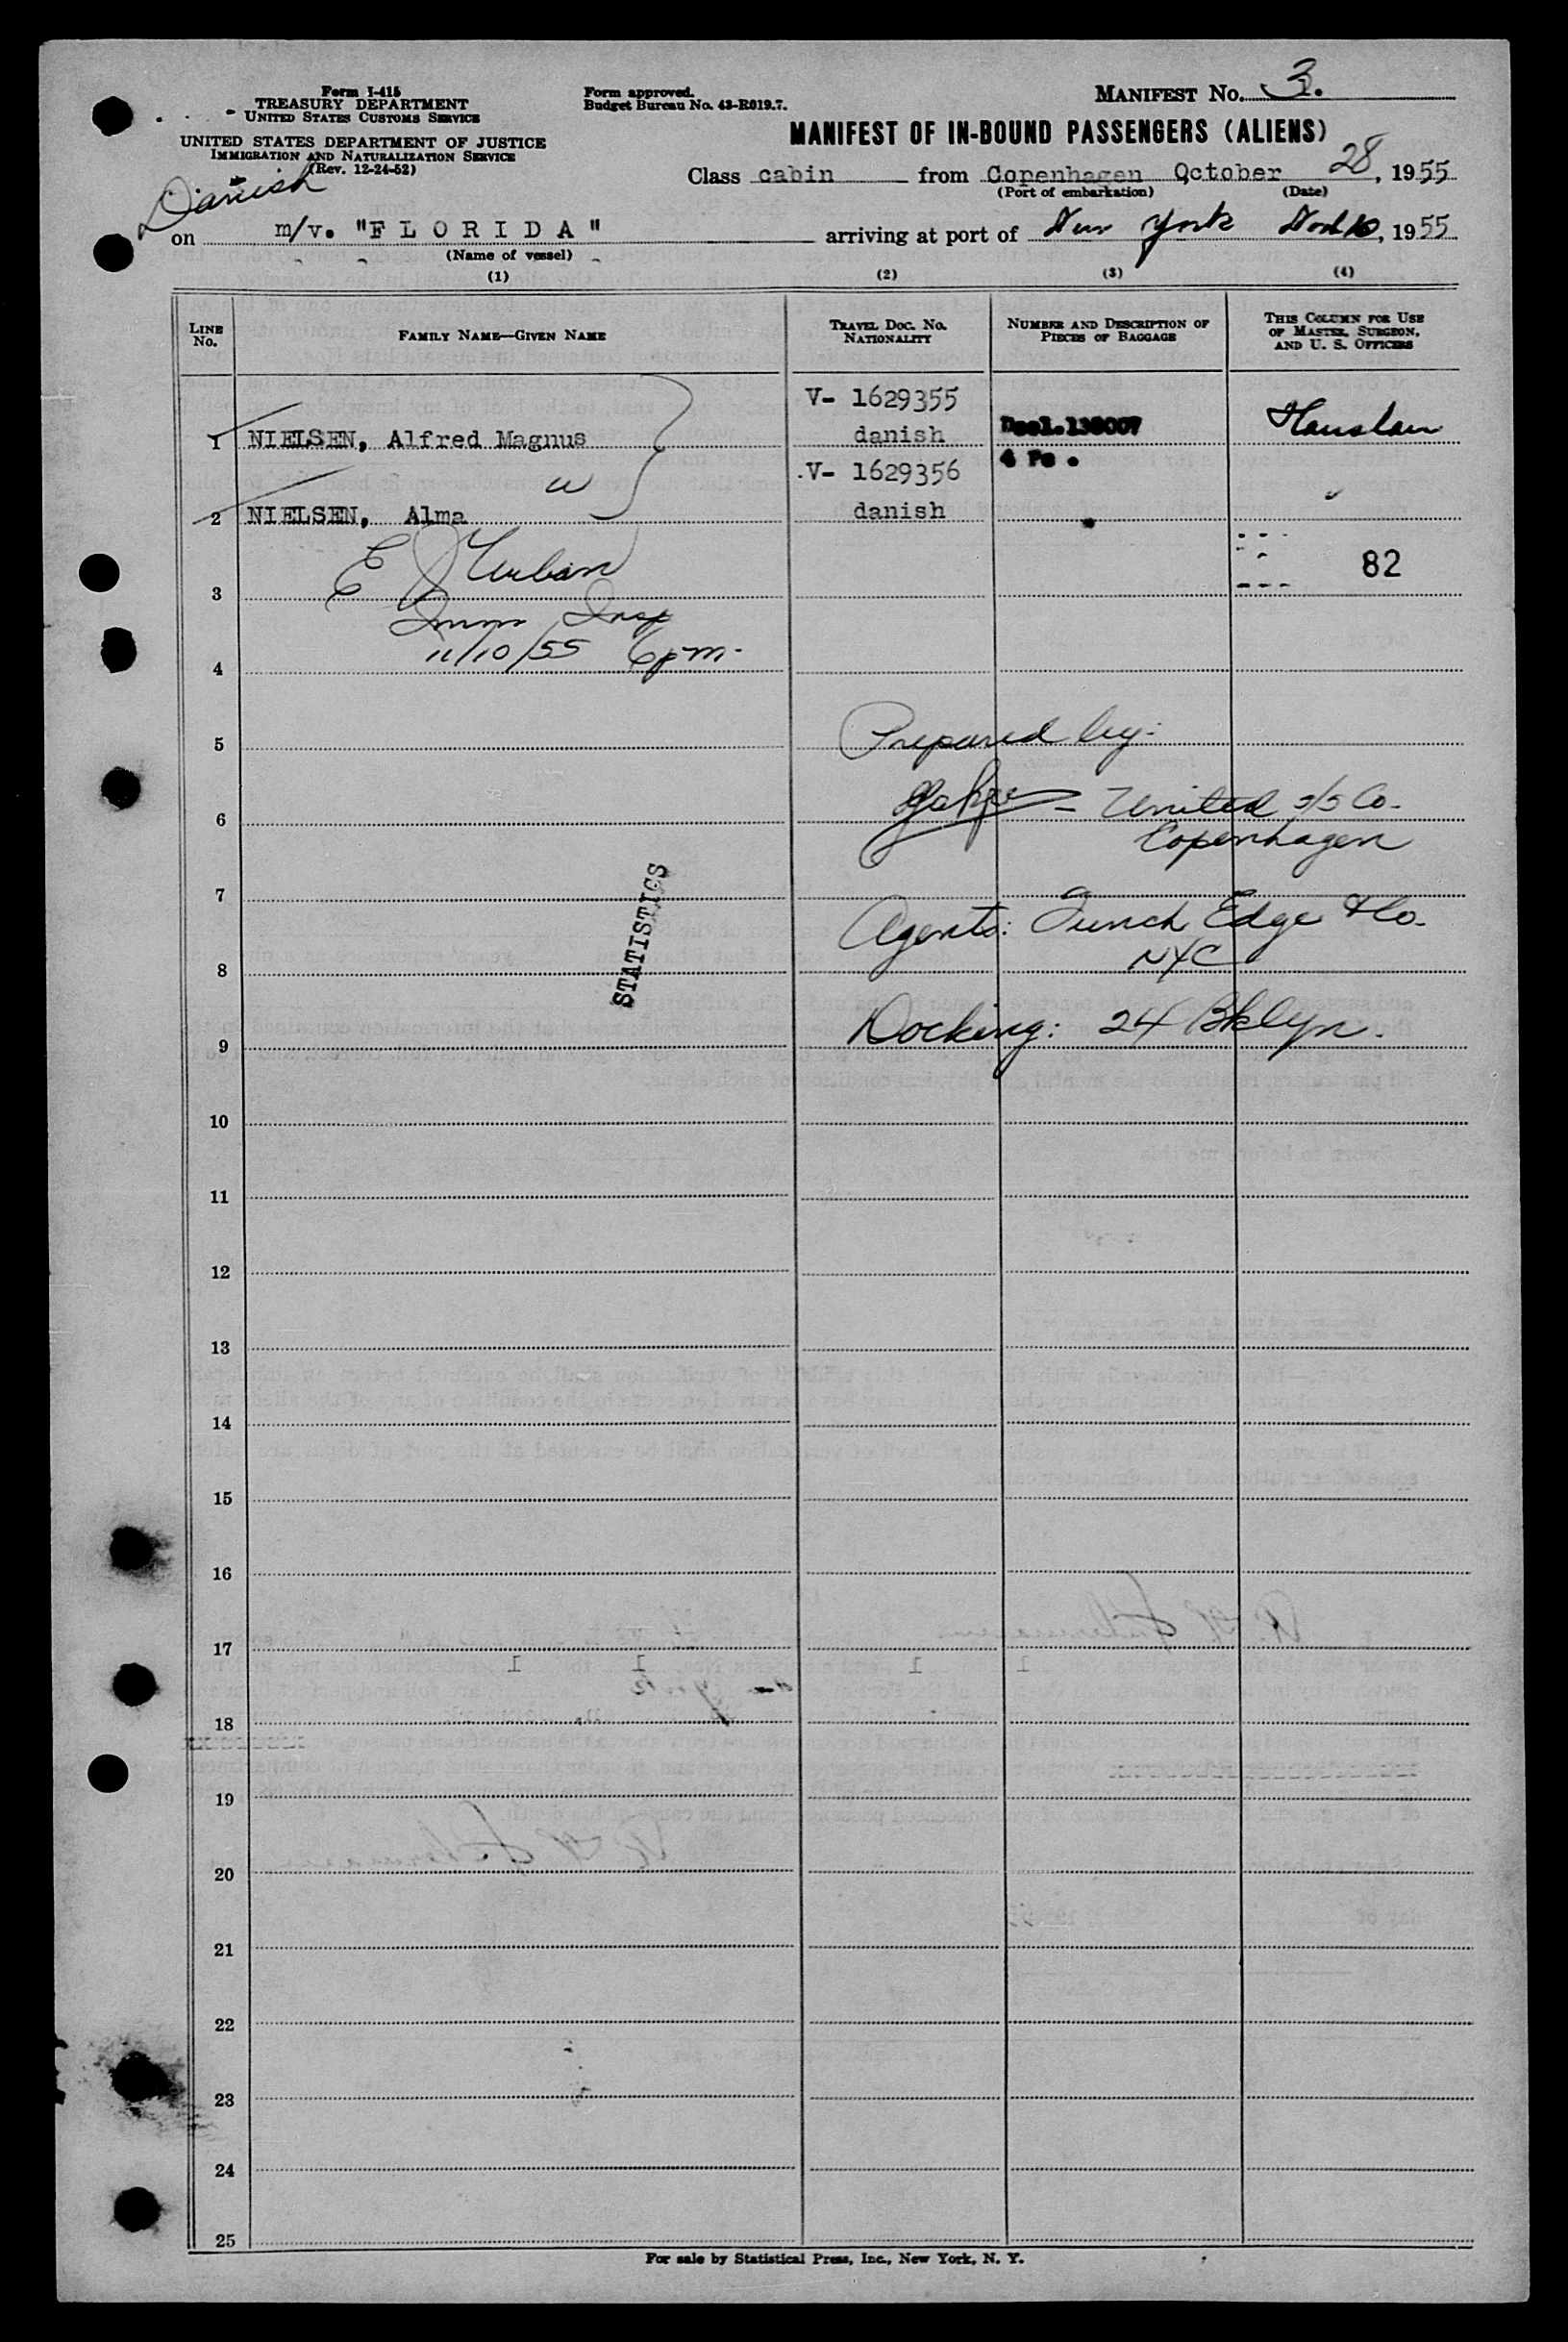 Form I-415
TREASURY DEPARTMENT
UNITED STATES CUSTOMS SERVICE
UNITED STATES DEPARTMENT OF JUSTICE
IMMIGRATION AND NATURALIZATION SERVICE
(Rev. 12-24-52)
Form approved.
Budget Bureau No. 43-R019.7.
MANIFEST No. 3.
MANIFEST OF IN-BOUND PASSENGERS (ALIENS)
Class cabin from Copenhagen October 28, 1955
(Port of embarkation) (Date)
Danish
on m/v. "F L O R I D A" arriving at port of New York Nov 10, 1955
(Name of vessel)
(1) (2) (3) (4)
LINE No. FAMILY NAME—GIVEN NAME TRAVEL DOC. No. NATIONALITY NUMBER AND DESCRIPTION OF PIECES OF BAGGAGE THIS COLUMN FOR USE OF MASTER, SURGEON, AND U. S. OFFICERS
V- 1629355
1 NIELSEN, Alfred Magnus danish Decl.138007
V- 1629356 4 Pc.
2 NIELSEN, Alma danish
82
3 E J
Imm Insp
4 11/10/55 6pm-
5 Prepared by:
6 - United S/S Co.
Copenhagen
STATISTICS
7
Agents: Funch Edge & Co.
8 NYC
9 Docking: 24 Bklyn.
10
11
12
13
14
15
16
17
18
19
20
21
22
23
24
25
For sale by Statistical Press, Inc., New York, N. Y.